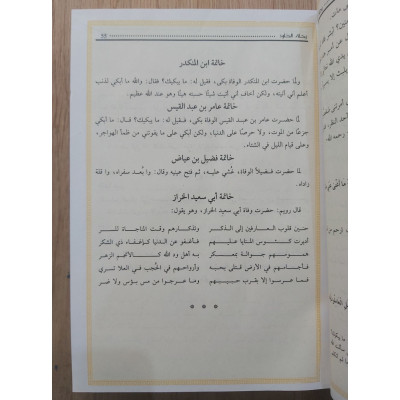 خاتمة ابن المنكدر
ولما حضرت ابن المنكدر الوفاة بكى، فقيل له: ما يبكيك؟ فقال: والله ما أبكي لذنب
أعلم أني أتيته، ولكن أخاف أني أتيت شيئًا حسبته هينًا وهو عند الله عظيم.
خاتمة عامر بن عبد القيس
لما حضرت عامر بن عبد القيس الوفاة بكى، فقيل له: ما يبكيك؟ قال: ما أبكي
جزعًا من الموت، ولا حرصًا على الدنيا، ولكن أبكي على ما يفوتني من ظمأ الهواجر،
وعلى قيام الليل في الشتاء.
خاتمة فضيل بن عياض
لما حضرت فضيلاً الوفاة، غشي عليه، ثم فتح عينيه وقال: وا بُعد سفراه، وا قلة
زاداه.
خاتمة أبي سعيد الخراز
قال رويم: حضرت وفاة أبي سعيد الخراز، وهو يقول:
حنين قلوب العارفين إلى الذكر وتذكارهم وقت المناجاة للسر
أديرت كئوس للمنايا عليهم فأغفو عن الدنيا كإغفاء ذي الشكر
همومهم جوالة بمعسكر به أهل ود الله كالأنجم الزهر
فأجسامهم في الأرض قتلى بحبه وأرواحهم في الحجب نحو العلا تسري
فما عرسوا إلا بقرب حبيبهم وما عرجوا من مس بؤس ولا ضر
* * *